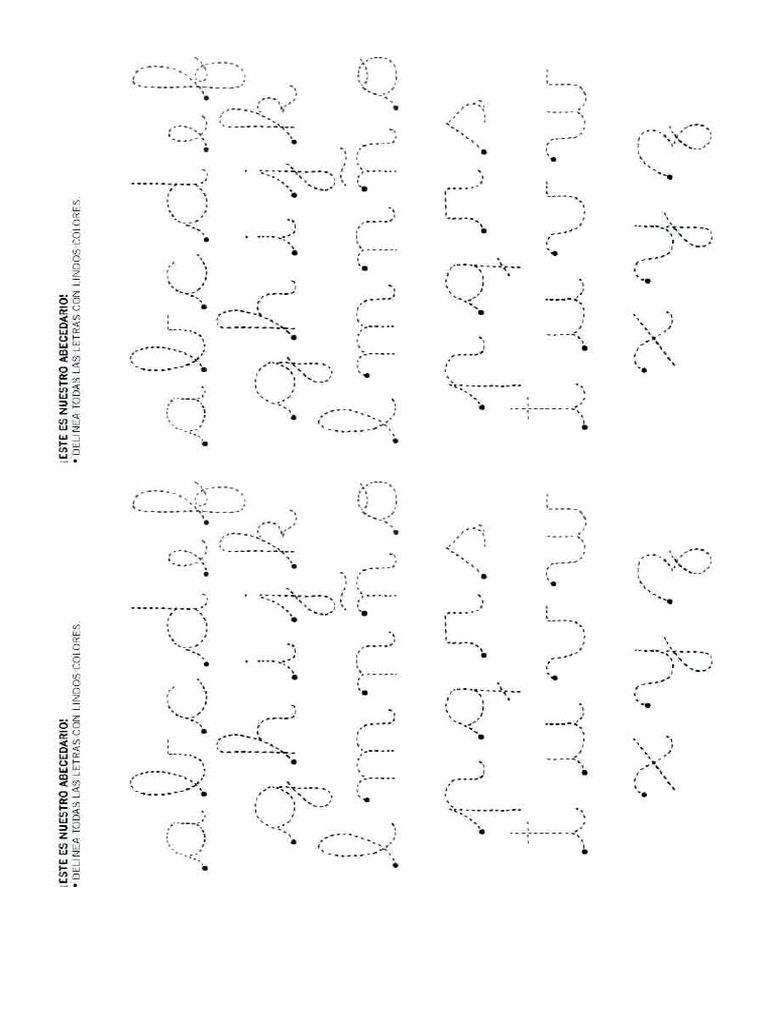 ¡ESTE ES NUESTRO ABECEDARIO!
• DELINEA TODAS LAS LETRAS CON LINDOS COLORES.
a b c d e f
g h i j k
l m n ñ o
p q r s
t u v w
x y z
¡ESTE ES NUESTRO ABECEDARIO!
• DELINEA TODAS LAS LETRAS CON LINDOS COLORES.
a b c d e f
g h i j k
l m n ñ o
p q r s
t u v w
x y z